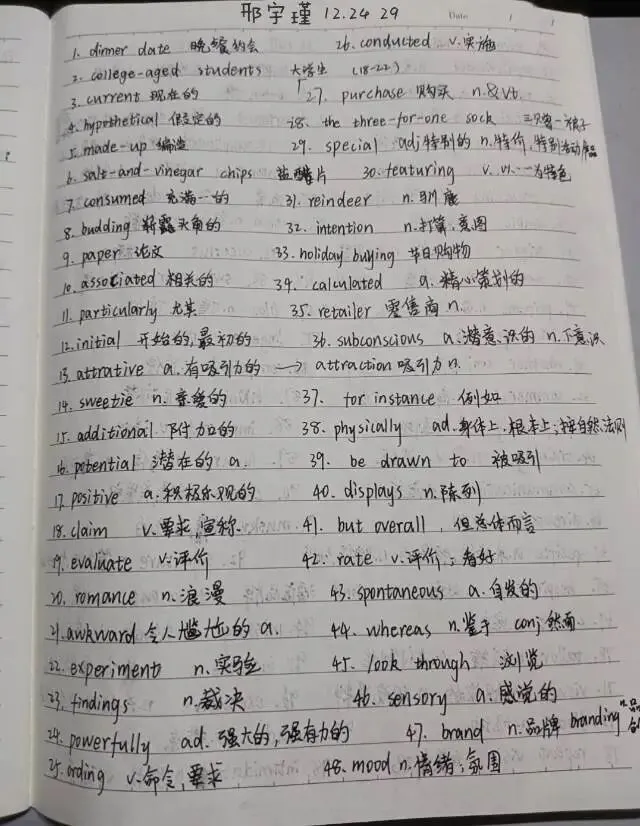 邢宇瑾 12.24 29
Date
1. dinner date 晚餐约会 26. conducted v.实施
2. college-aged students 大学生 (18-22)
3. current 现在的 27. purchase 购买 n.&vt.
4. hypothetical 假定的 28. the three-for-one sock 三只省一袜子
5. made-up 编造 29. special adj特别的 n.特价,特别活动
6. salt-and-vinegar chips 盐醋片 30. featuring v. 以……为特色
7. consumed 充满一的 31. reindeer n.驯鹿
8. budding 崭露头角的 32. intention n.打算,意图
9. paper 论文 33. holiday buying 节日购物
10. associated 相关的 34. calculated a.精心策划的
11. particularly 尤其 35. retailer 零售商 n.
12. initial 开始的,最初的 36. subconscious a.潜意识的 n.下意识
13. attrative a.有吸引力的 → attraction 吸引力 n.
14. sweetie n.亲爱的 37. for instance 例如
15. additional 附加的 38. physically ad.身体上,根本上;按自然法则
16. potential 潜在的 a. 39. be drawn to 被吸引
17. positive a.积极乐观的 40. displays n.陈列
18. claim v.要求,宣称 41. but overall, 但总体而言
19. evaluate v.评价 42. rate v.评价;看好
20. romance n.浪漫 43. spontaneous a.自发的
21. awkward 令人尴尬的 a. 44. whereas n.鉴于 conj然而
22. experiment n.实验 45. look through 浏览
23. findings n.裁决 46. sensory a.感觉的
24. powerfully ad.强大的,强有力的 47. brand n.品牌 branding
25. ording v.命令,要求 48. mood n.情绪;氛围